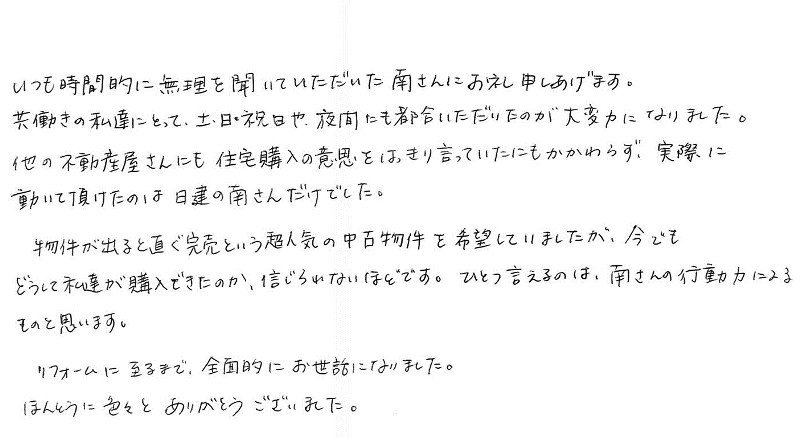 いつも時間的に無理を聞いていただいた南さんにお礼申しあげます。
共働きの私達にとって、土・日・祝日や、夜間にも都合いただいたのが大変力になりました。
他の不動産屋さんにも住宅購入の意思をはっきり言っていたにもかかわらず、実際に
動いて頂けたのは日建の南さんだけでした。
物件が出ると直ぐ完売という超人気の中古物件を希望していましたが、今でも
どうして私達が購入できたのか、信じられないほどです。ひとつ言えるのは、南さんの行動力による
ものと思います。
リフォームに至るまで、全面的にお世話になりました。
ほんとうに色々とありがとうございました。